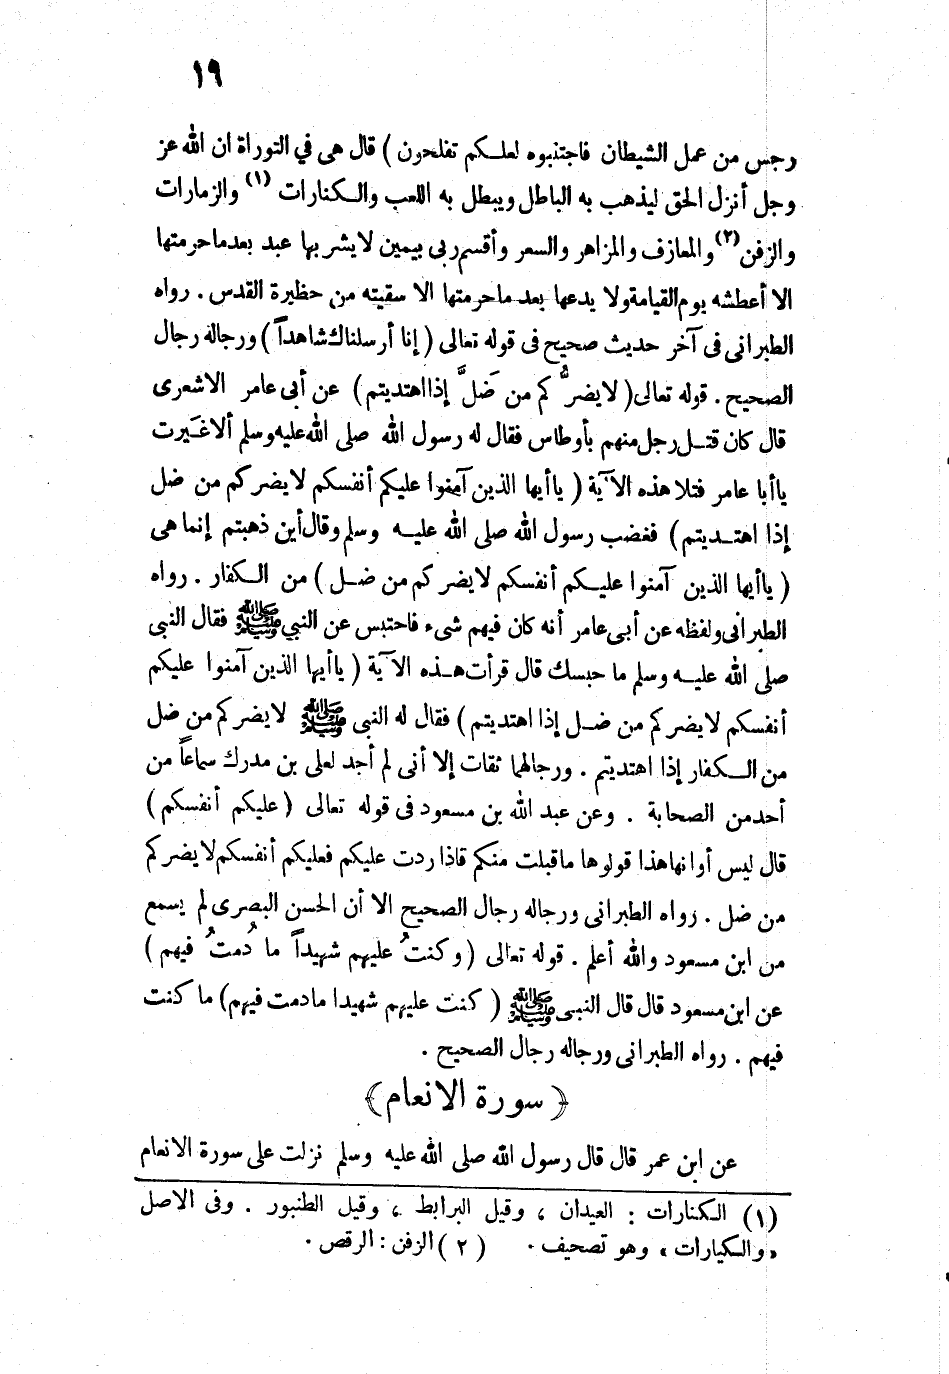 ١٩
رجس من عمل الشيطان فاجتنبوه لعلكم تفلحون ) قال هى في التوراة ان الله عز
وجل أنزل الحق ليذهب به الباطل ويبطل به اللعب والكنارات (١) والزمارات
والزفن (٢) والمعازف والمزاهر والسعر وأقسم ربى بيمين لا يشربها عبد بعد ما حرمتها
الا أعطشه يوم القيامة ولا يدعها بعد ما حرمتها الا سقيته من حظيرة القدس . رواه
الطبرانى فى آخر حديث صحيح فى قوله تعالى ( إنا أرسلناك شاهداً ) ورجاله رجال
الصحيح . قوله تعالى ( لا يضرُّ كم من ضَلَّ إذا اهتديتم ) عن أبى عامر الاشعرى
قال كان قتل رجل منهم بأوطاس فقال له رسول الله صلى الله عليه وسلم ألا غيَرت
ياأبا عامر فتلا هذه الآية ( ياأيها الذين آمنوا عليكم أنفسكم لا يضركم من ضل
إذا اهتديتم ) فغضب رسول الله صلى الله عليه وسلم وقال أين ذهبتم إنما هى
( ياأيها الذين آمنوا عليكم أنفسكم لا يضركم من ضل ) من الكفار . رواه
الطبرانى ولفظه عن أبى عامر أنه كان فيهم شىء فاحتبس عن النبي ﷺ فقال النبى
صلى الله عليه وسلم ما حبسك قال قرأت هذه الآية ( ياأيها الذين آمنوا عليكم
أنفسكم لا يضركم من ضل إذا اهتديتم ) فقال له النبى ﷺ لا يضركم من ضل
من الكفار إذا اهتديتم . ورجالهما ثقات إلا أنى لم أجد لعلى بن مدرك سماعاً من
أحد من الصحابة . وعن عبد الله بن مسعود فى قوله تعالى ( عليكم أنفسكم )
قال ليس أوانها هذا قولوها ما قبلت منكم فاذا ردت عليكم فعليكم أنفسكم لا يضركم
من ضل . رواه الطبرانى ورجاله رجال الصحيح الا أن الحسن البصرى لم يسمع
من ابن مسعود والله أعلم . قوله تعالى ( وكنتُ عليهم شهيداً ما دُمتُ فيهم )
عن ابن مسعود قال قال النبى ﷺ ( كنت عليهم شهيدا مادمت فيهم ) ما كنت
فيهم . رواه الطبرانى ورجاله رجال الصحيح .
﴿ سورة الانعام ﴾
عن ابن عمر قال قال رسول الله صلى الله عليه وسلم نزلت على سورة الانعام
(١) الكنارات : العيدان ، وقيل البرابط ، وقيل الطنبور . وفى الاصل
« والكيارات » وهو تصحيف . ( ٢ ) الزفن : الرقص .